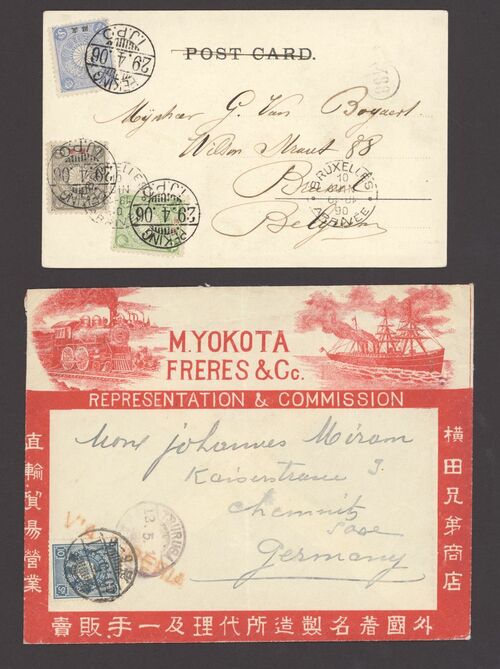 POST CARD.
支那
PEKING
29.4.06
I.J.P.O.
PEKING
29.4.06
I.J.P.O.
PEKING
29.4.06
I.J.P.O.
Mijnheer G. Van Bogaert
Wilson Straat 88
BRUXELLES
ARRIVEE
Belgium
M.YOKOTA
FRERES & Co.
REPRESENTATION & COMMISSION
Mons Johannes Miram
Kaiserstrasse 3.
Chemnitz
Saxe
Germany
TSURUGA
13.5
直輸貿易営業
横田兄弟商店
外國著名製造所代理及一手販賣